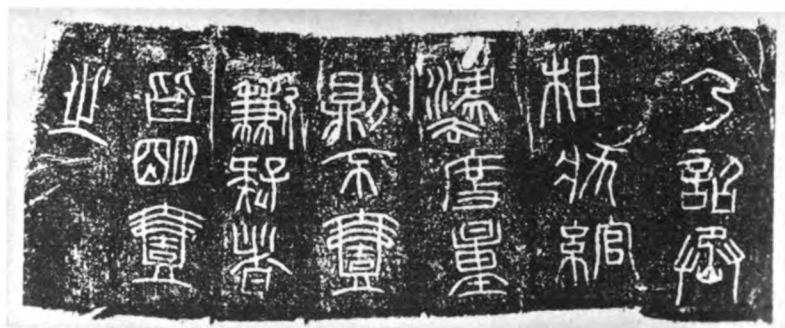 乃詔丞
相狀綰
灋度量
則不壹
歉疑者
皆明壹
之